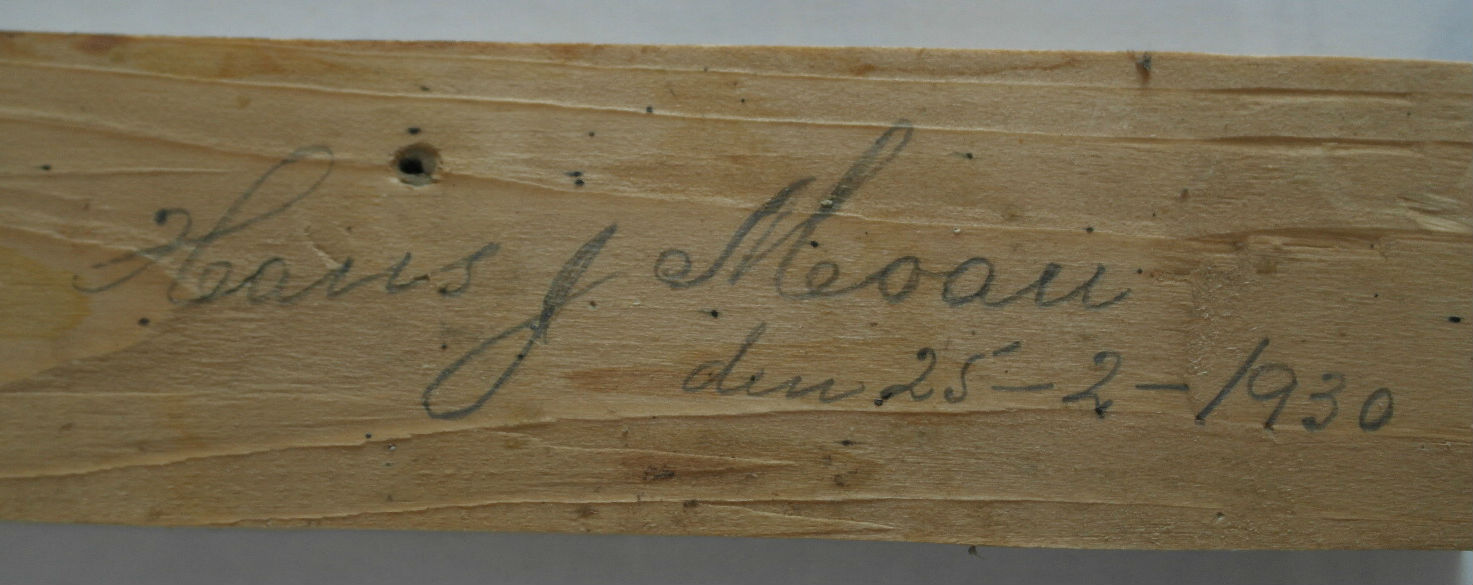 Hans J Moan
den 25-2-1930